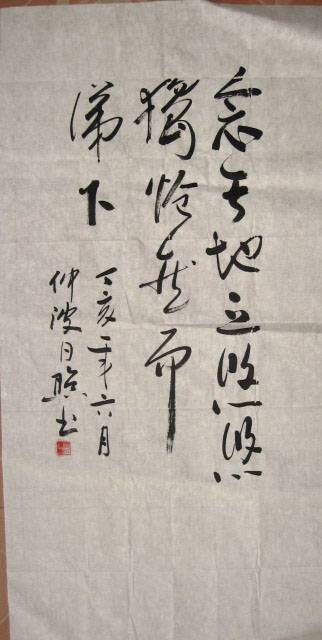 念天地之悠悠
獨怆然而
涕下
丁亥年六月
仲波日照书